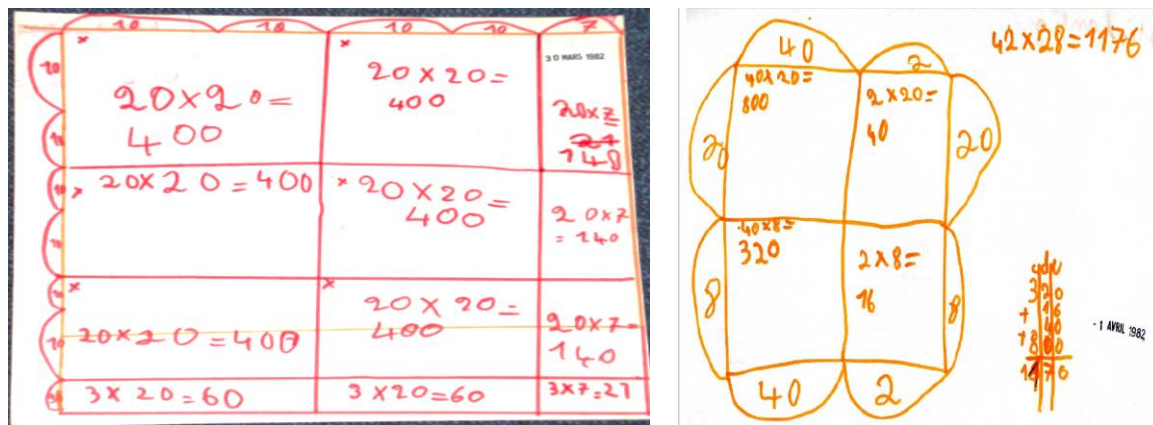 10 10 10 10 7
10
10
10
10
10
10
20×20=
400
20×20=
400
30 MARS 1982
20×7
21
140
20×20=400
20×20=
400
20×7
=140
20×20=400
20×20=
400
20×7=
140
3×20=60
3×20=60
3×7=21
42×28=1176
40
2
20
40×20=
800
2×20=
40
20
8
40×8=
320
2×8=
16
8
40
2
c d u
320
+ 16
40
+ 800
1176
-1 AVRIL 1982